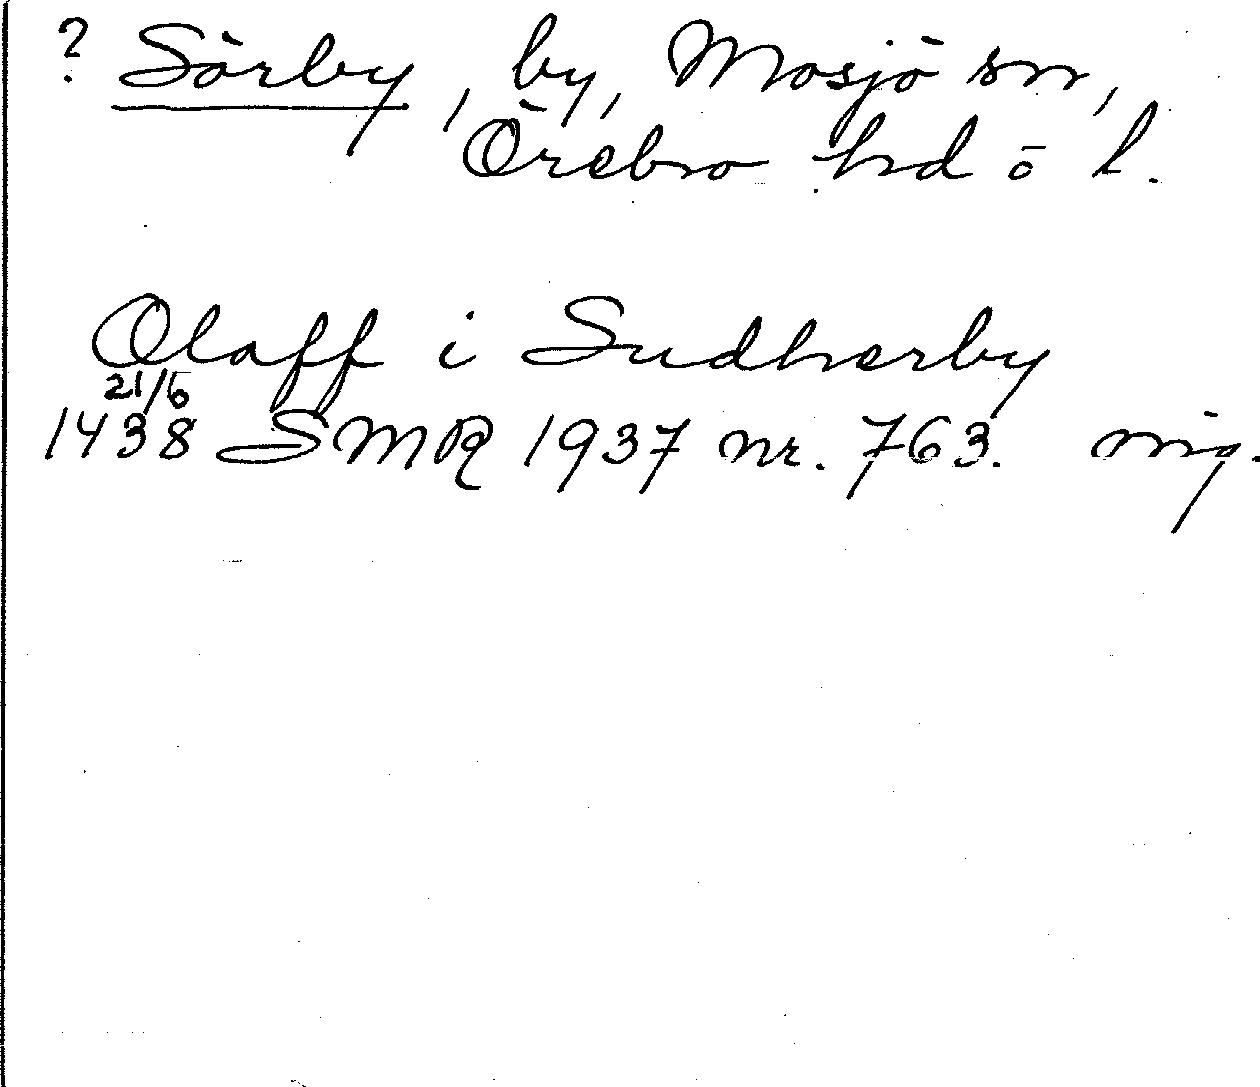 ? Sörby, by, Mosjö sn,
Örebro hd ö l.
Olaff i Sudherby
21/5
1438 SMR 1937 nr. 763. orig.